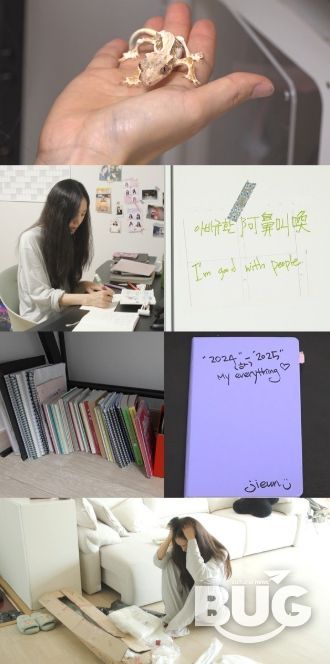 아비규환 阿鼻叫喚
I'm good with people
"2024" – "2025"
My everything♡
jieun
BUG